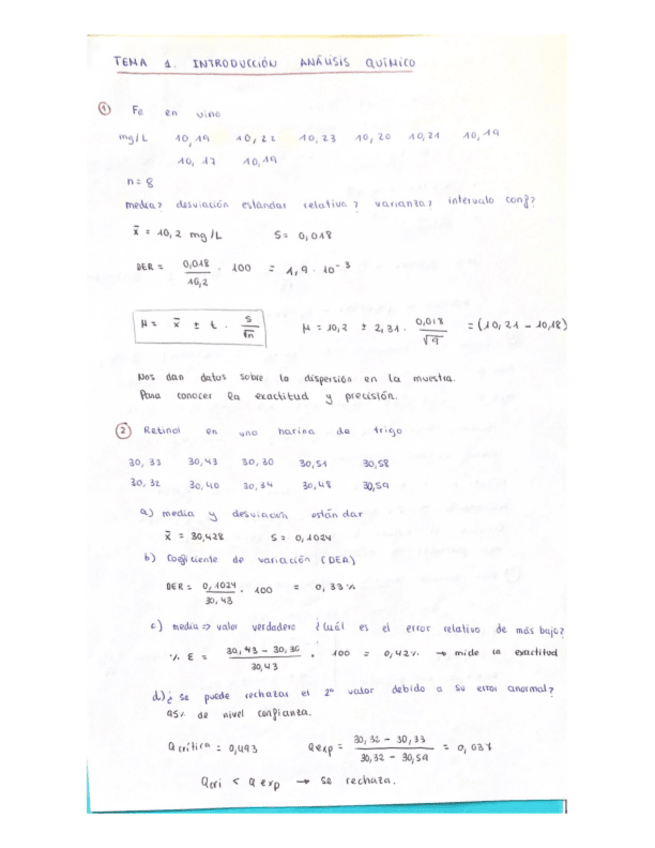 TEMA 1. INTRODUCCIÓN ANÁLISIS QUÍMICO
① Fe en vino
mg/L 10,19 10,22 10,23 10,20 10,21 10,19
10,17 10,19
n = 8
media? desviación estándar relativa? varianza? intervalo conf?
x̄ = 10,2 mg/L S = 0,018
DER = 0,018 / 10,2 · 100 = 1,9 · 10⁻³
μ = x̄ ± t · S / √n μ = 10,2 ± 2,31 · 0,018 / √9 = (10,21 - 10,18)
Nos dan datos sobre la dispersión en la muestra.
Para conocer la exactitud y precisión.
② Retinol en una harina de trigo
30,33 30,43 30,30 30,51 30,58
30,32 30,40 30,34 30,48 30,59
a) media y desviación estándar
x̄ = 30,428 S = 0,1024
b) Coeficiente de variación (DER)
DER = 0,1024 / 30,43 · 100 = 0,33 %
c) media => valor verdadero ¿Cuál es el error relativo de más bajo?
% E = 30,43 - 30,30 / 30,43 · 100 = 0,42% → mide la exactitud
d) ¿se puede rechazar el 2º valor debido a su error anormal?
95% de nivel confianza.
Q crítica = 0,493 Q exp = 30,32 - 30,33 / 30,32 - 30,59 = 0,037
Q cri < Q exp → se rechaza.